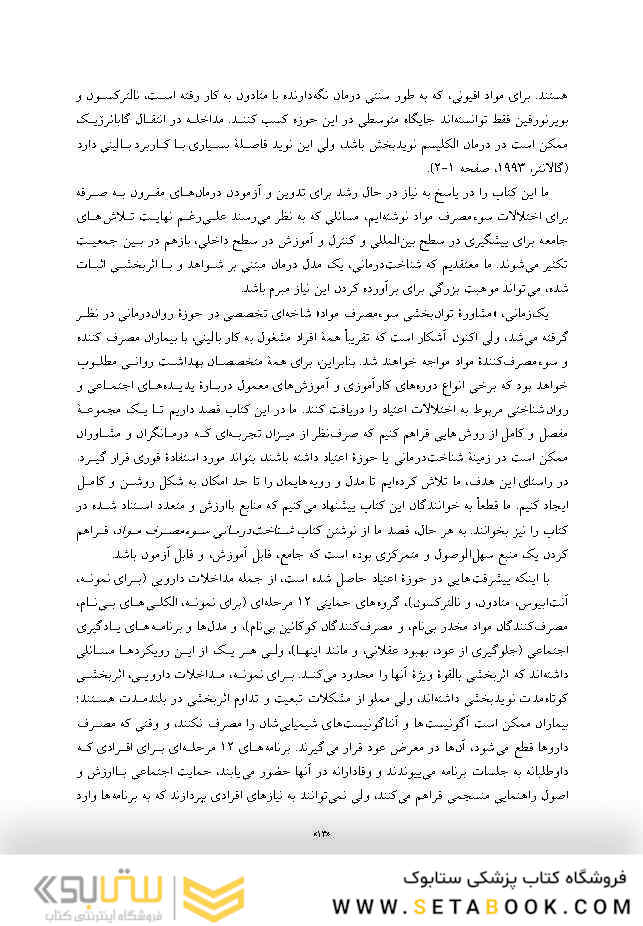 هستند. برای مواد افیونی، که به طور سنتی درمان نگه‌دارنده با متادون به کار رفته اســت، نالترکســون و
بوپرنورفین فقط توانسته‌اند جایگاه متوسطی در این حوزه کسب کننـد. مداخلـه در انتقـال گابائرژیـک
ممکن است در درمان الکلیسم نویدبخش باشد، ولی این نوید فاصـلهٔ بسـیاری بـا کـاربرد بـالینی دارد
(گالانتر، ۱۹۹۳، صفحه ۱-۲).
ما این کتاب را در پاسخ به نیاز در حال رشد برای تدوین و آزمودن درمان‌هـای مقـرون بـه صـرفه
برای اختلالات سوءمصرف مواد نوشته‌ایم، مسائلی که به نظر می‌رسند علـی‌رغـم نهایـت تـلاش‌هـای
جامعه برای پیشگیری در سطح بین‌المللی و کنترل و آموزش در سطح داخلی، بازهم در بـین جمعیـت
تکثیر می‌شوند. ما معتقدیم که شناخت‌درمانی، یک مدل درمان مبتنی بر شـواهد و بـا اثربخشـی اثبـات
شده، می‌تواند موهبت بزرگی برای برآورده کردن این نیاز مبرم باشد.
یک‌زمانی، «مشاورهٔ توان‌بخشی سوءمصرف مواد» شاخه‌ای تخصصی در حوزهٔ روان‌درمانی در نظـر
گرفته می‌شد، ولی اکنون آشکار است که تقریباً همهٔ افراد مشغول به کار بالینی، با بیماران مصرف کننده
و سوءمصرف‌کنندهٔ مواد مواجه خواهند شد. بنابراین، برای همهٔ متخصصـان بهداشـت روانـی مطلـوب
خواهد بود که برخی انواع دوره‌های کارآموزی و آموزش‌های معمول دربـارهٔ پدیـده‌هـای اجتمـاعی و
روان‌شناختی مربوط به اختلالات اعتیاد را دریافت کنند. ما در این کتاب قصد داریم تـا یـک مجموعـهٔ
مفصل و کامل از روش‌هایی فراهم کنیم که صرف‌نظر از میـزان تجربـه‌ای کـه درمـانگران و مشـاوران
ممکن است در زمینهٔ شناخت‌درمانی یا حوزهٔ اعتیاد داشته باشند، بتواند مورد استفادهٔ فوری قرار گیـرد.
در راستای این هدف، ما تلاش کرده‌ایم تا مدل و رویه‌هایمان را تا حد امکان به شکل روشـن و کامـل
ایجاد کنیم. ما قطعاً به خوانندگان این کتاب پیشنهاد می‌کنیم که منابع باارزش و متعدد اسـتناد شـده در
کتاب را نیز بخوانند. به هر حال، قصد ما از نوشتن کتاب شناخت‌درمـانی سـوءمصـرف مـواد، فـراهم
کردن یک منبع سهل‌الوصول و متمرکزی بوده است که جامع، قابل آموزش، و قابل آزمون باشد.
با اینکه پیشرفت‌هایی در حوزهٔ اعتیاد حاصل شده است، از جمله مداخلات دارویی (بـرای نمونـه،
آنتابیوس، متادون، و نالترکسون)، گروه‌های حمایتی ۱۲ مرحله‌ای (برای نمونـه، الکلـی‌هـای بـی‌نـام،
مصرف‌کنندگان مواد مخدر بی‌نام، و مصرف‌کنندگان کوکائین بی‌نام)، و مدل‌ها و برنامـه‌هـای یـادگیری
اجتماعی (جلوگیری از عود، بهبود عقلانی، و مانند اینهـا)، ولـی هـر یـک از ایـن رویکردهـا مسـائلی
داشته‌اند که اثربخشی بالقوهٔ ویژهٔ آنها را محدود می‌کنـد. بـرای نمونـه، مـداخلات دارویـی، اثربخشـی
کوتاه‌مدت نویدبخشی داشته‌اند، ولی مملو از مشکلات تبعیت و تداوم اثربخشی در بلندمـدت هسـتند؛
بیماران ممکن است آگونیست‌ها و آنتاگونیست‌های شیمیایی‌شان را مصرف نکنند، و وقتی که مصـرف
داروها قطع می‌شود، آن‌ها در معرض عود قرار می‌گیرند. برنامه‌هـای ۱۲ مرحلـه‌ای بـرای افـرادی کـه
داوطلبانه به جلسات برنامه می‌پیوندند و وفادارانه در آنها حضور می‌یابند، حمایت اجتماعی بـاارزش و
اصول راهنمایی منسجمی فراهم می‌کنند، ولی نمی‌توانند به نیازهای افرادی بپردازند که به برنامه‌ها وارد
«۱۳»
فروشگاه کتاب پزشکی ستابوک
WWW.SETABOOK.COM
ستابوک
فروشگاه اینترنتی کتاب